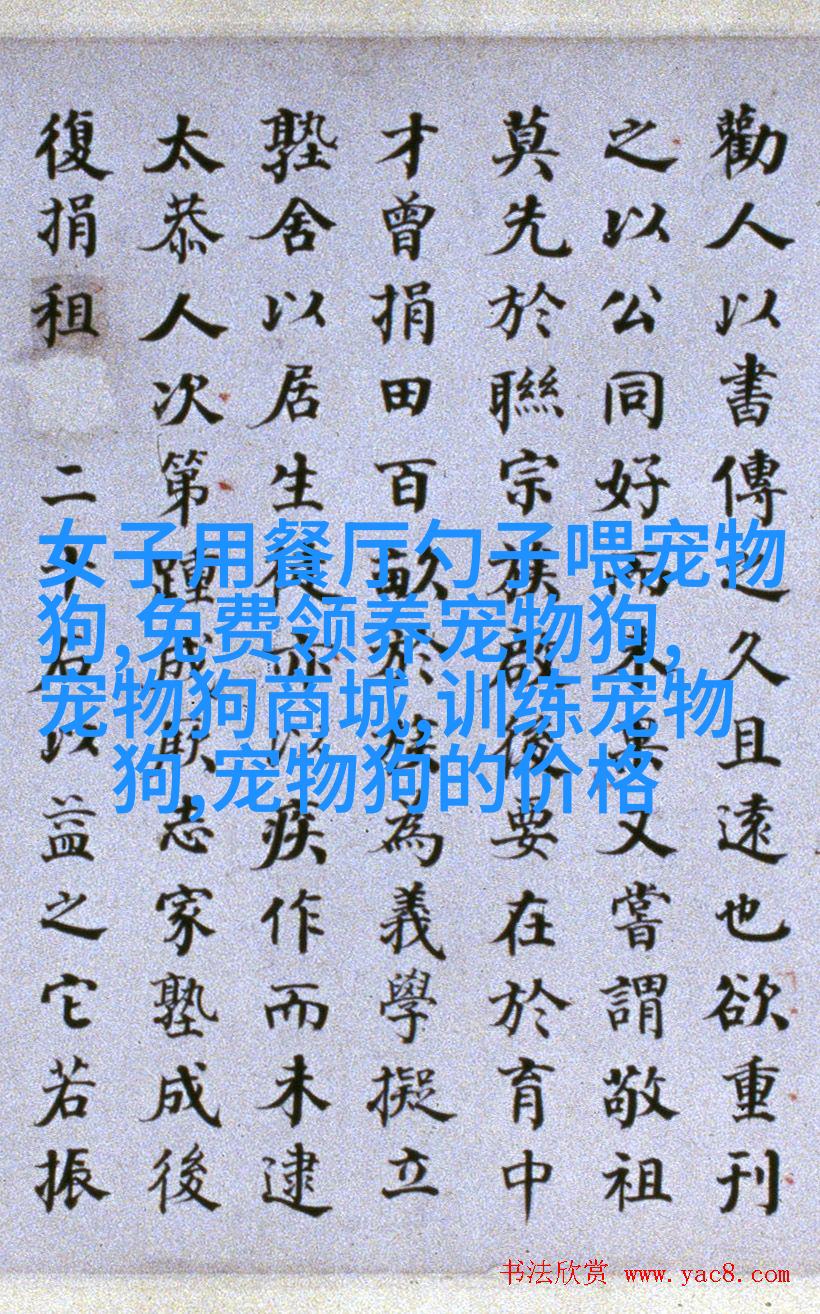 勸人以書傳之久且遠也欲重刊
之以公同好而不果又嘗謂敬祖
莫先於聯宗族啟後要在於育中
才曾捐田百畝於族為義學擬立
塾舍以居生徒亦以疾作而未逮
太恭人次第踵成厥志家塾成後
復捐租二十石以益之它若振
女子用餐厅勺子喂宠物
狗,免费领养宠物狗,
宠物狗商城,训练宠物
狗,宠物狗的价格
书法欣赏 www.yac8.com